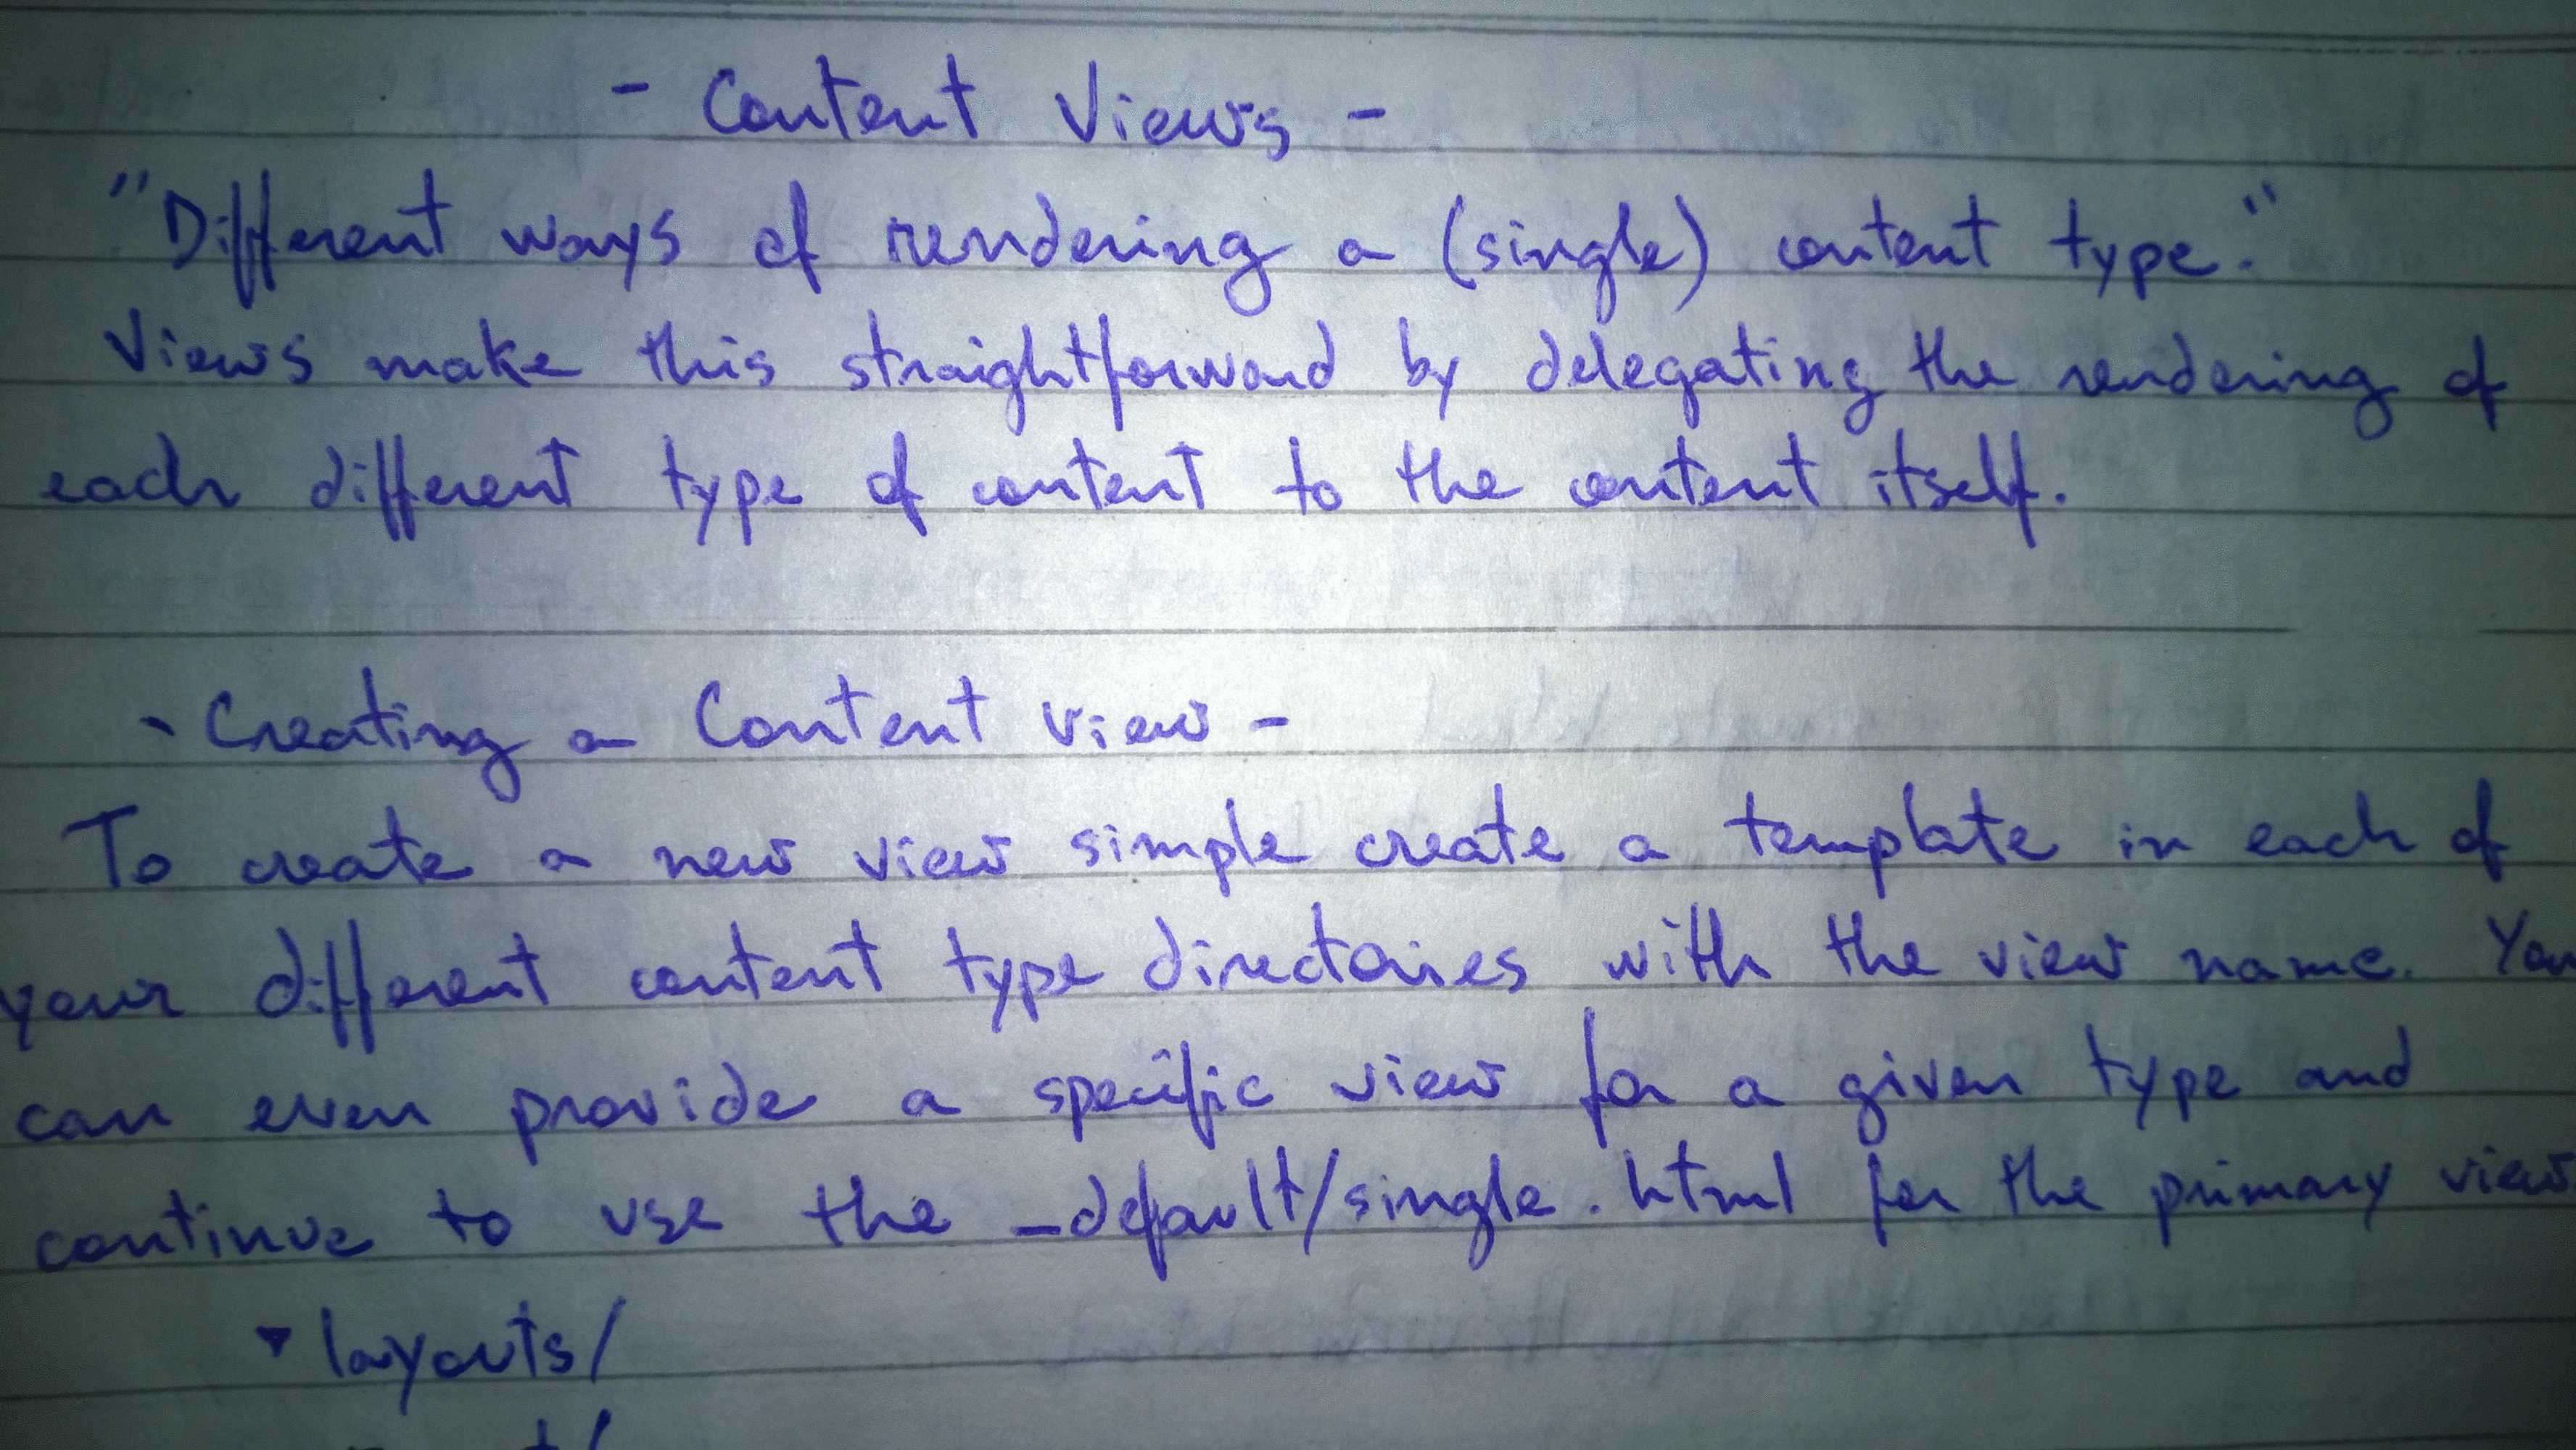 - Content Views -
"Different ways of rendering a (single) content type."
Views make this straightforward by delegating the rendering of
each different type of content to the content itself.
- Creating a Content view -
To create a new view simple create a template in each of
your different content type directories with the view name. You
can even provide a specific view for a given type and
continue to use the _default/single.html for the primary view
▾ layouts/